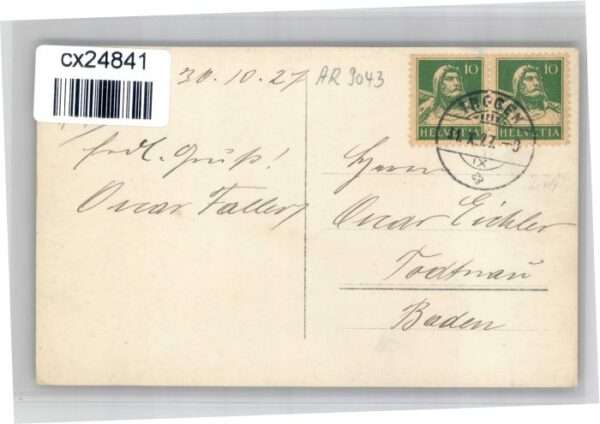 cx24841
30.10.27
AR 9043
frdl. Gruß!
Oscar Faller
10
10
HELVETIA
HELVETIA
TUGGEN
IX
Herrn
Oscar Eichler
Todtnau
Baden